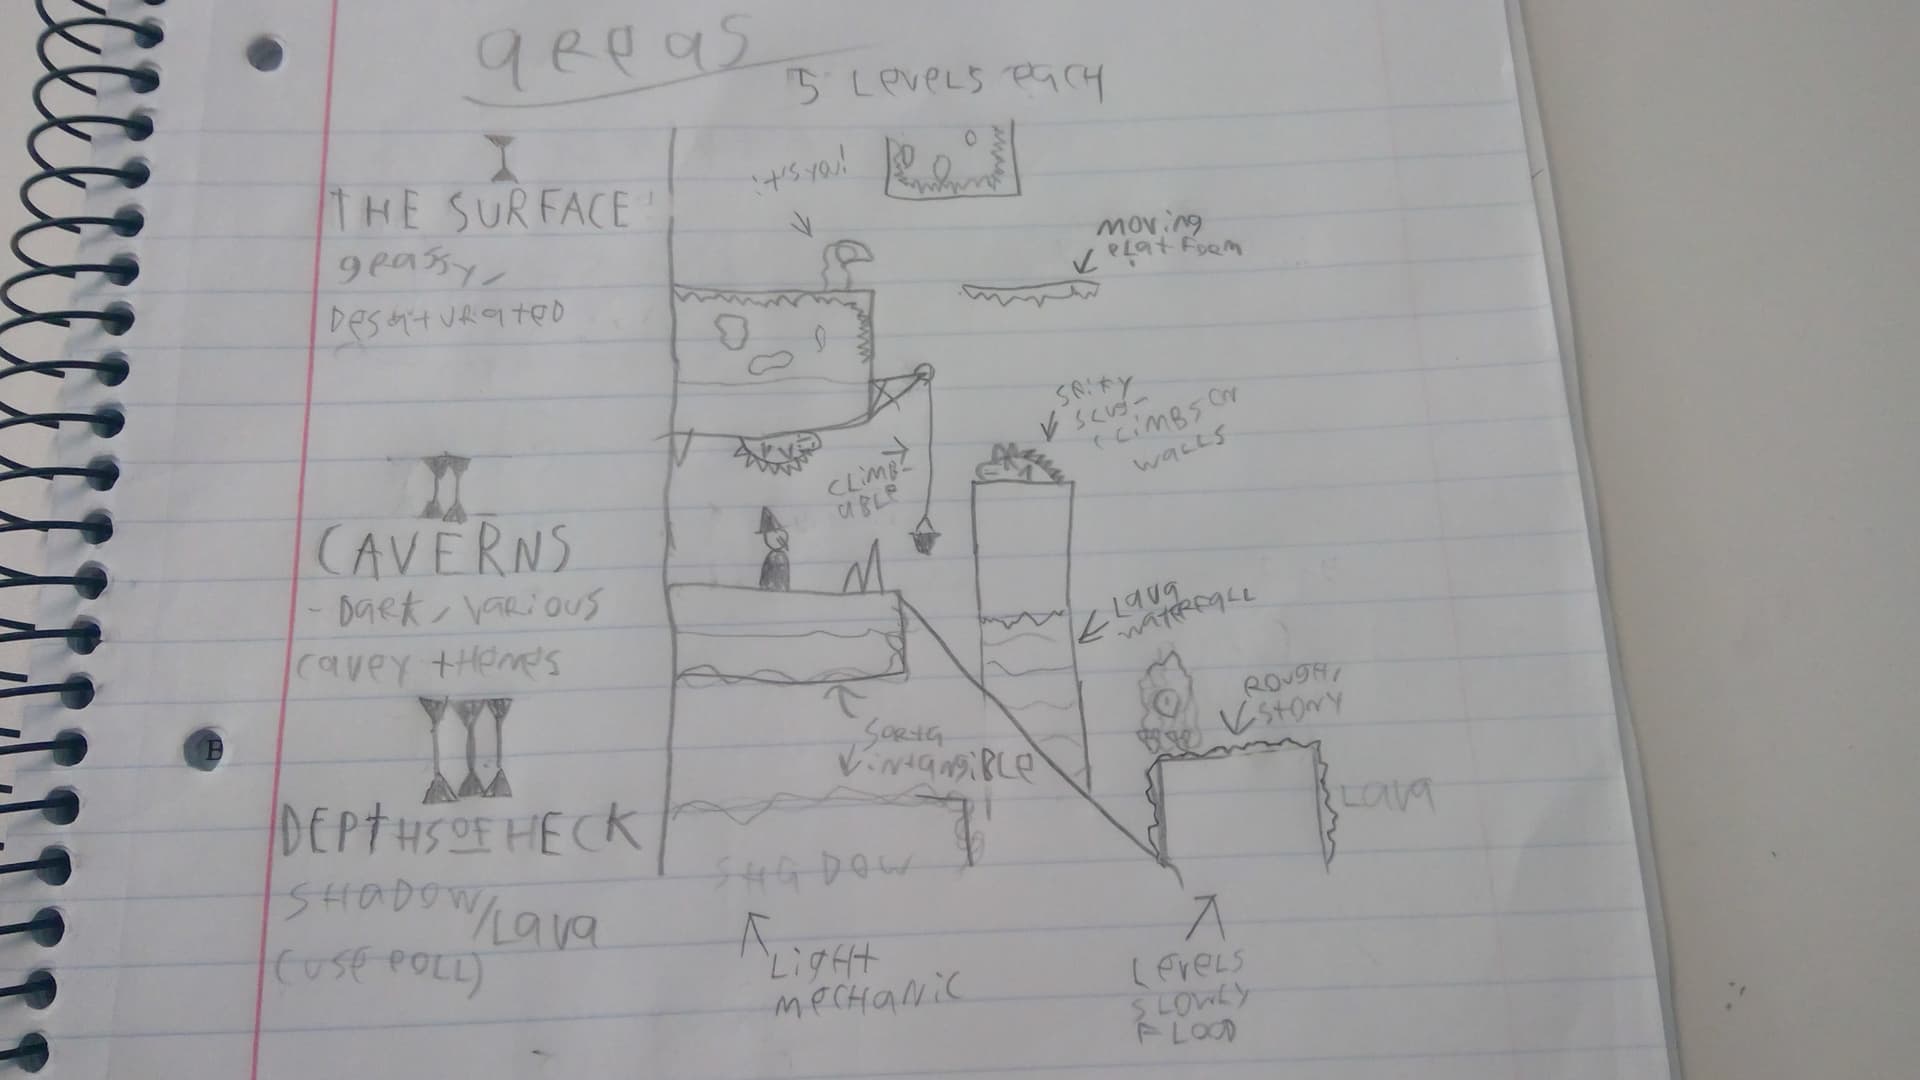 areas
5 Levels each
I
THE SURFACE:
grassy,
Desaturated
moving
platform
spiky
slug-
climbs on
walls
climb-
able
II
CAVERNS
- Dark, various
cavey themes
Lava
waterfall
rough,
stony
III
DEPTHS OF HECK
SHADOW/Lava
(use poll)
sorta
intangible
Lava
SHADOW
Light
mechanic
Levels
slowly
flood